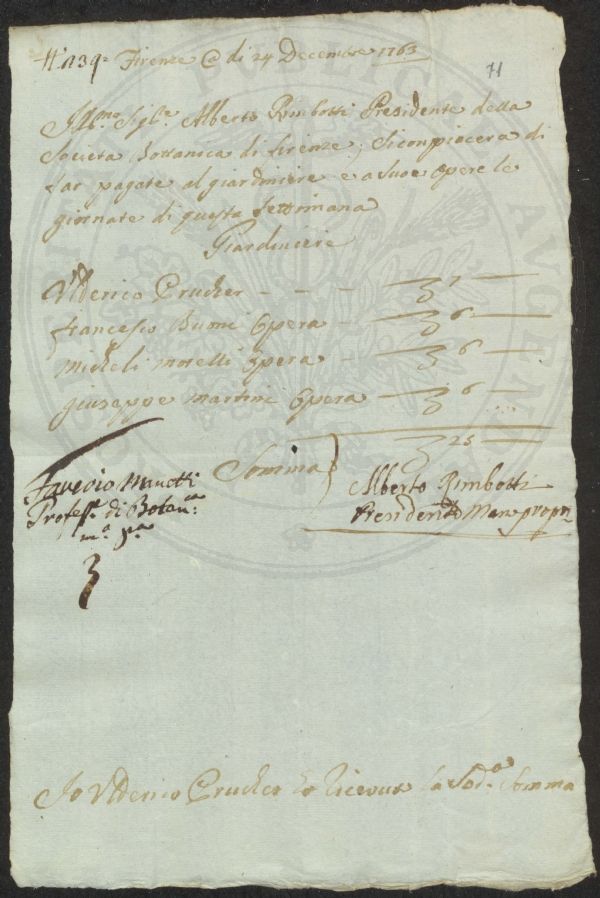 N° 139 Firenze @ di 24 Decembre 1763
71
Ill:mo Sig:re Alberto Rimbotti Presidente della
Societa Bottanica di firenze; Si conpiacera di
far pagate al giardiniere e a suoe opere le
giornate di questa settimana
Giardiniere
Vlderico Prucher - - - 7 —
francesco Bumi Opera - 6 —
micheli morelli opera - 6 —
giuseppe martini Opera 6 —
25 —
Somma
Saverio Manetti
Profess.e di Botan:ca
m:o p:a
Alberto Rimbotti
Presidente Man propri
Io Vlderico Prucher ho riceuuto la Sod:a Somma